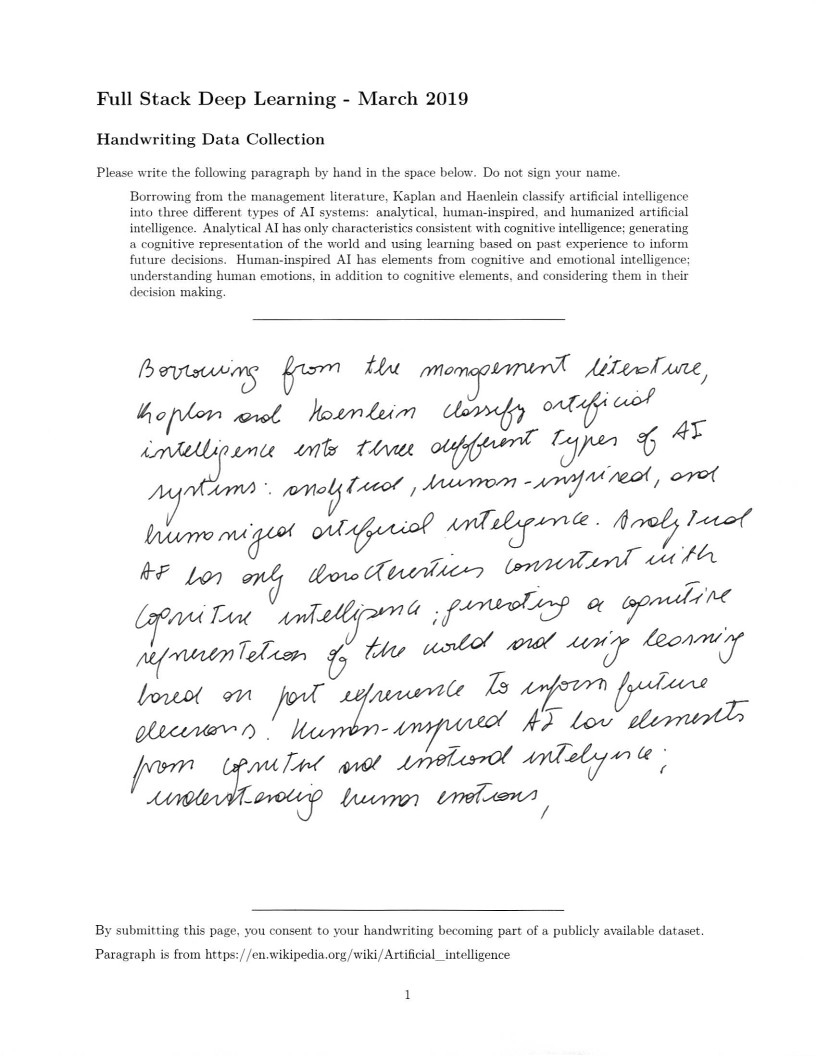 Full Stack Deep Learning - March 2019
Handwriting Data Collection
Please write the following paragraph by hand in the space below. Do not sign your name.
Borrowing from the management literature, Kaplan and Haenlein classify artificial intelligence
into three different types of AI systems: analytical, human-inspired, and humanized artificial
intelligence. Analytical AI has only characteristics consistent with cognitive intelligence; generating
a cognitive representation of the world and using learning based on past experience to inform
future decisions. Human-inspired AI has elements from cognitive and emotional intelligence;
understanding human emotions, in addition to cognitive elements, and considering them in their
decision making.
Borrowing from the management literature,
Kaplan and Haenlein classify artificial
intelligence into three different types of AI
systems: analytical, human-inspired, and
humanized artificial inteligence. Analytical
AI has only characteristics consistent with
cognitive intelligence; generating a cognitive
representation of the world and using learning
based on past experience to inform future
decisions. Human-inspired AI has elements
from cognitive and emotional inteligence;
understanding human emotions,
By submitting this page, you consent to your handwriting becoming part of a publicly available dataset.
Paragraph is from https://en.wikipedia.org/wiki/Artificial_intelligence
1